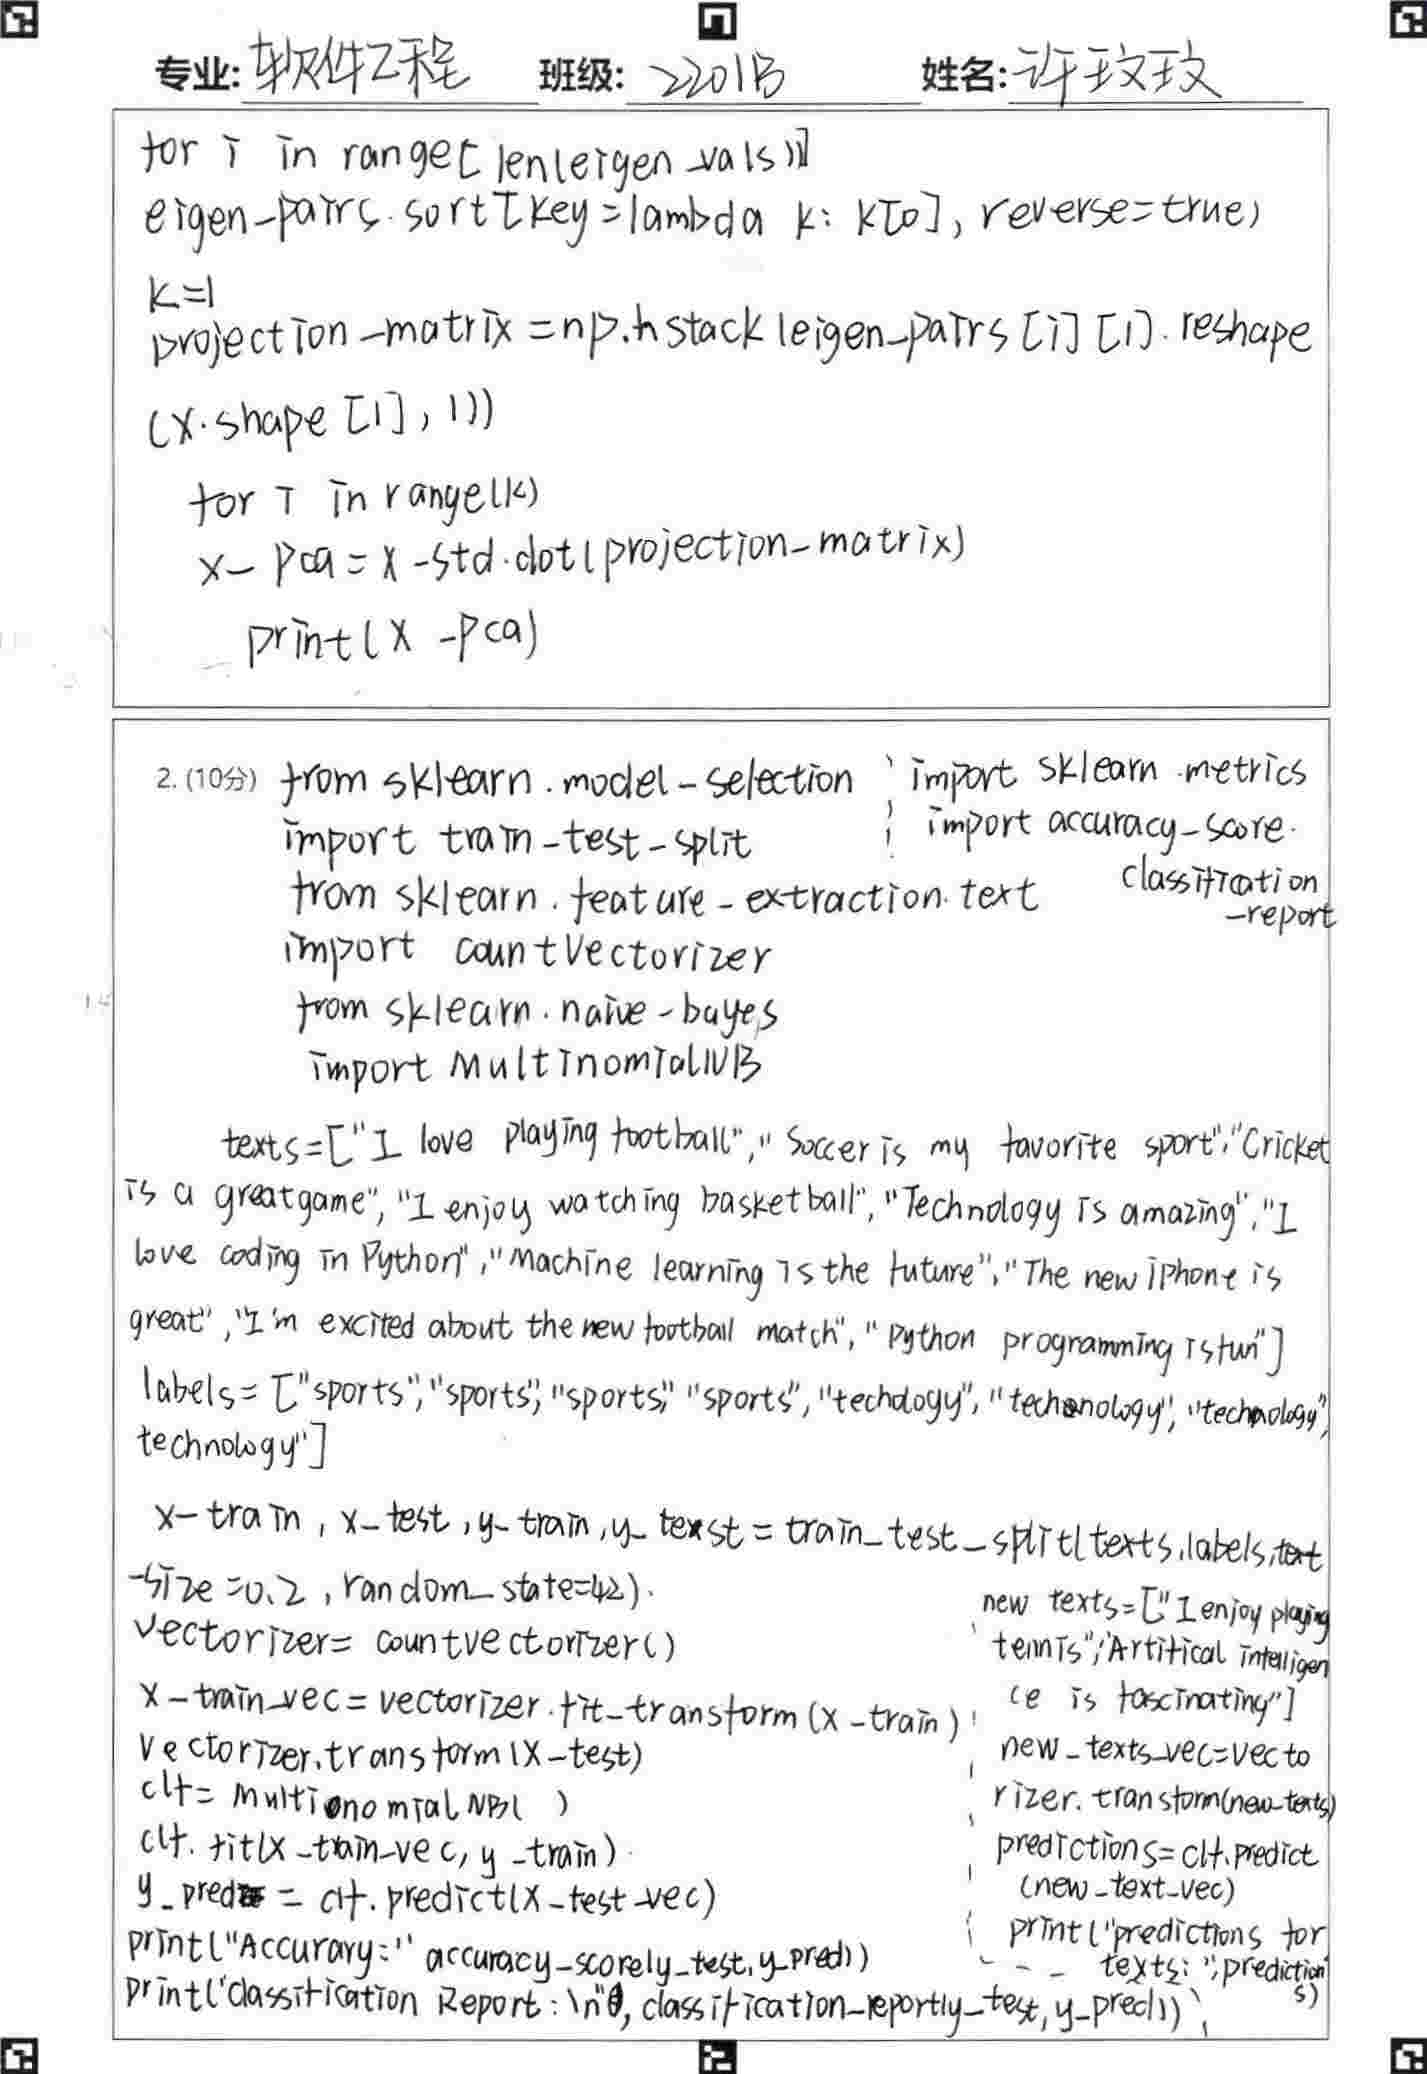 专业: 软件工程 班级: 2201B 姓名: 许玟玟
for i in range[len(eigen_vals))]
eigen_pairs.sort[key=lambda k: k[0], reverse=true)
k=1
projection-matrix=np.hstack(eigen_pairs[i][1].reshape
(x.shape[1],1))
for i in range(k)
x-pca=x-std.dot(projection-matrix)
print(x-pca)
2. (10分) from sklearn.model-selection
import train-test-split
from sklearn.feature-extraction.text
import countVectorizer
from sklearn.naive-bayes
import MultinomialNB
import sklearn.metrics
import accuracy-score.
classification
-report
texts=["I love playing football","Soccer is my favorite sport","Cricket
is a great game","I enjoy watching basketball","Technology is amazing","I
love coding in Python","Machine learning is the future","The new iphone is
great","I'm excited about the new football match","Python programming is fun"]
labels=["sports","sports","sports","sports","techology","technology","technology",
technology"]
x-train, x-test, y-train, y-test = train_test_split(texts,labels,text
-size=0.2, random_state=42).
Vectorizer= countvectorizer()
x-train_vec=vectorizer.fit-transform(x-train)
Vectorizer.transform(x-test)
clf= MultinomialNB( )
clf.fit(x-train-vec, y-train)
y_pred = clf.predict(x-test-vec)
print("Accurary:" accuracy-score(y_test,y_pred))
print('classification Report:\n", classification_report(y_test,y_pred))
new texts=["I enjoy playing
tennis","Artifical intelligen
ce is fascinating"]
new_texts_vec=vecto
rizer.transform(new-texts)
predictions=clf.predict
(new-text-vec)
print("predictions for
texts:",prediction
s)